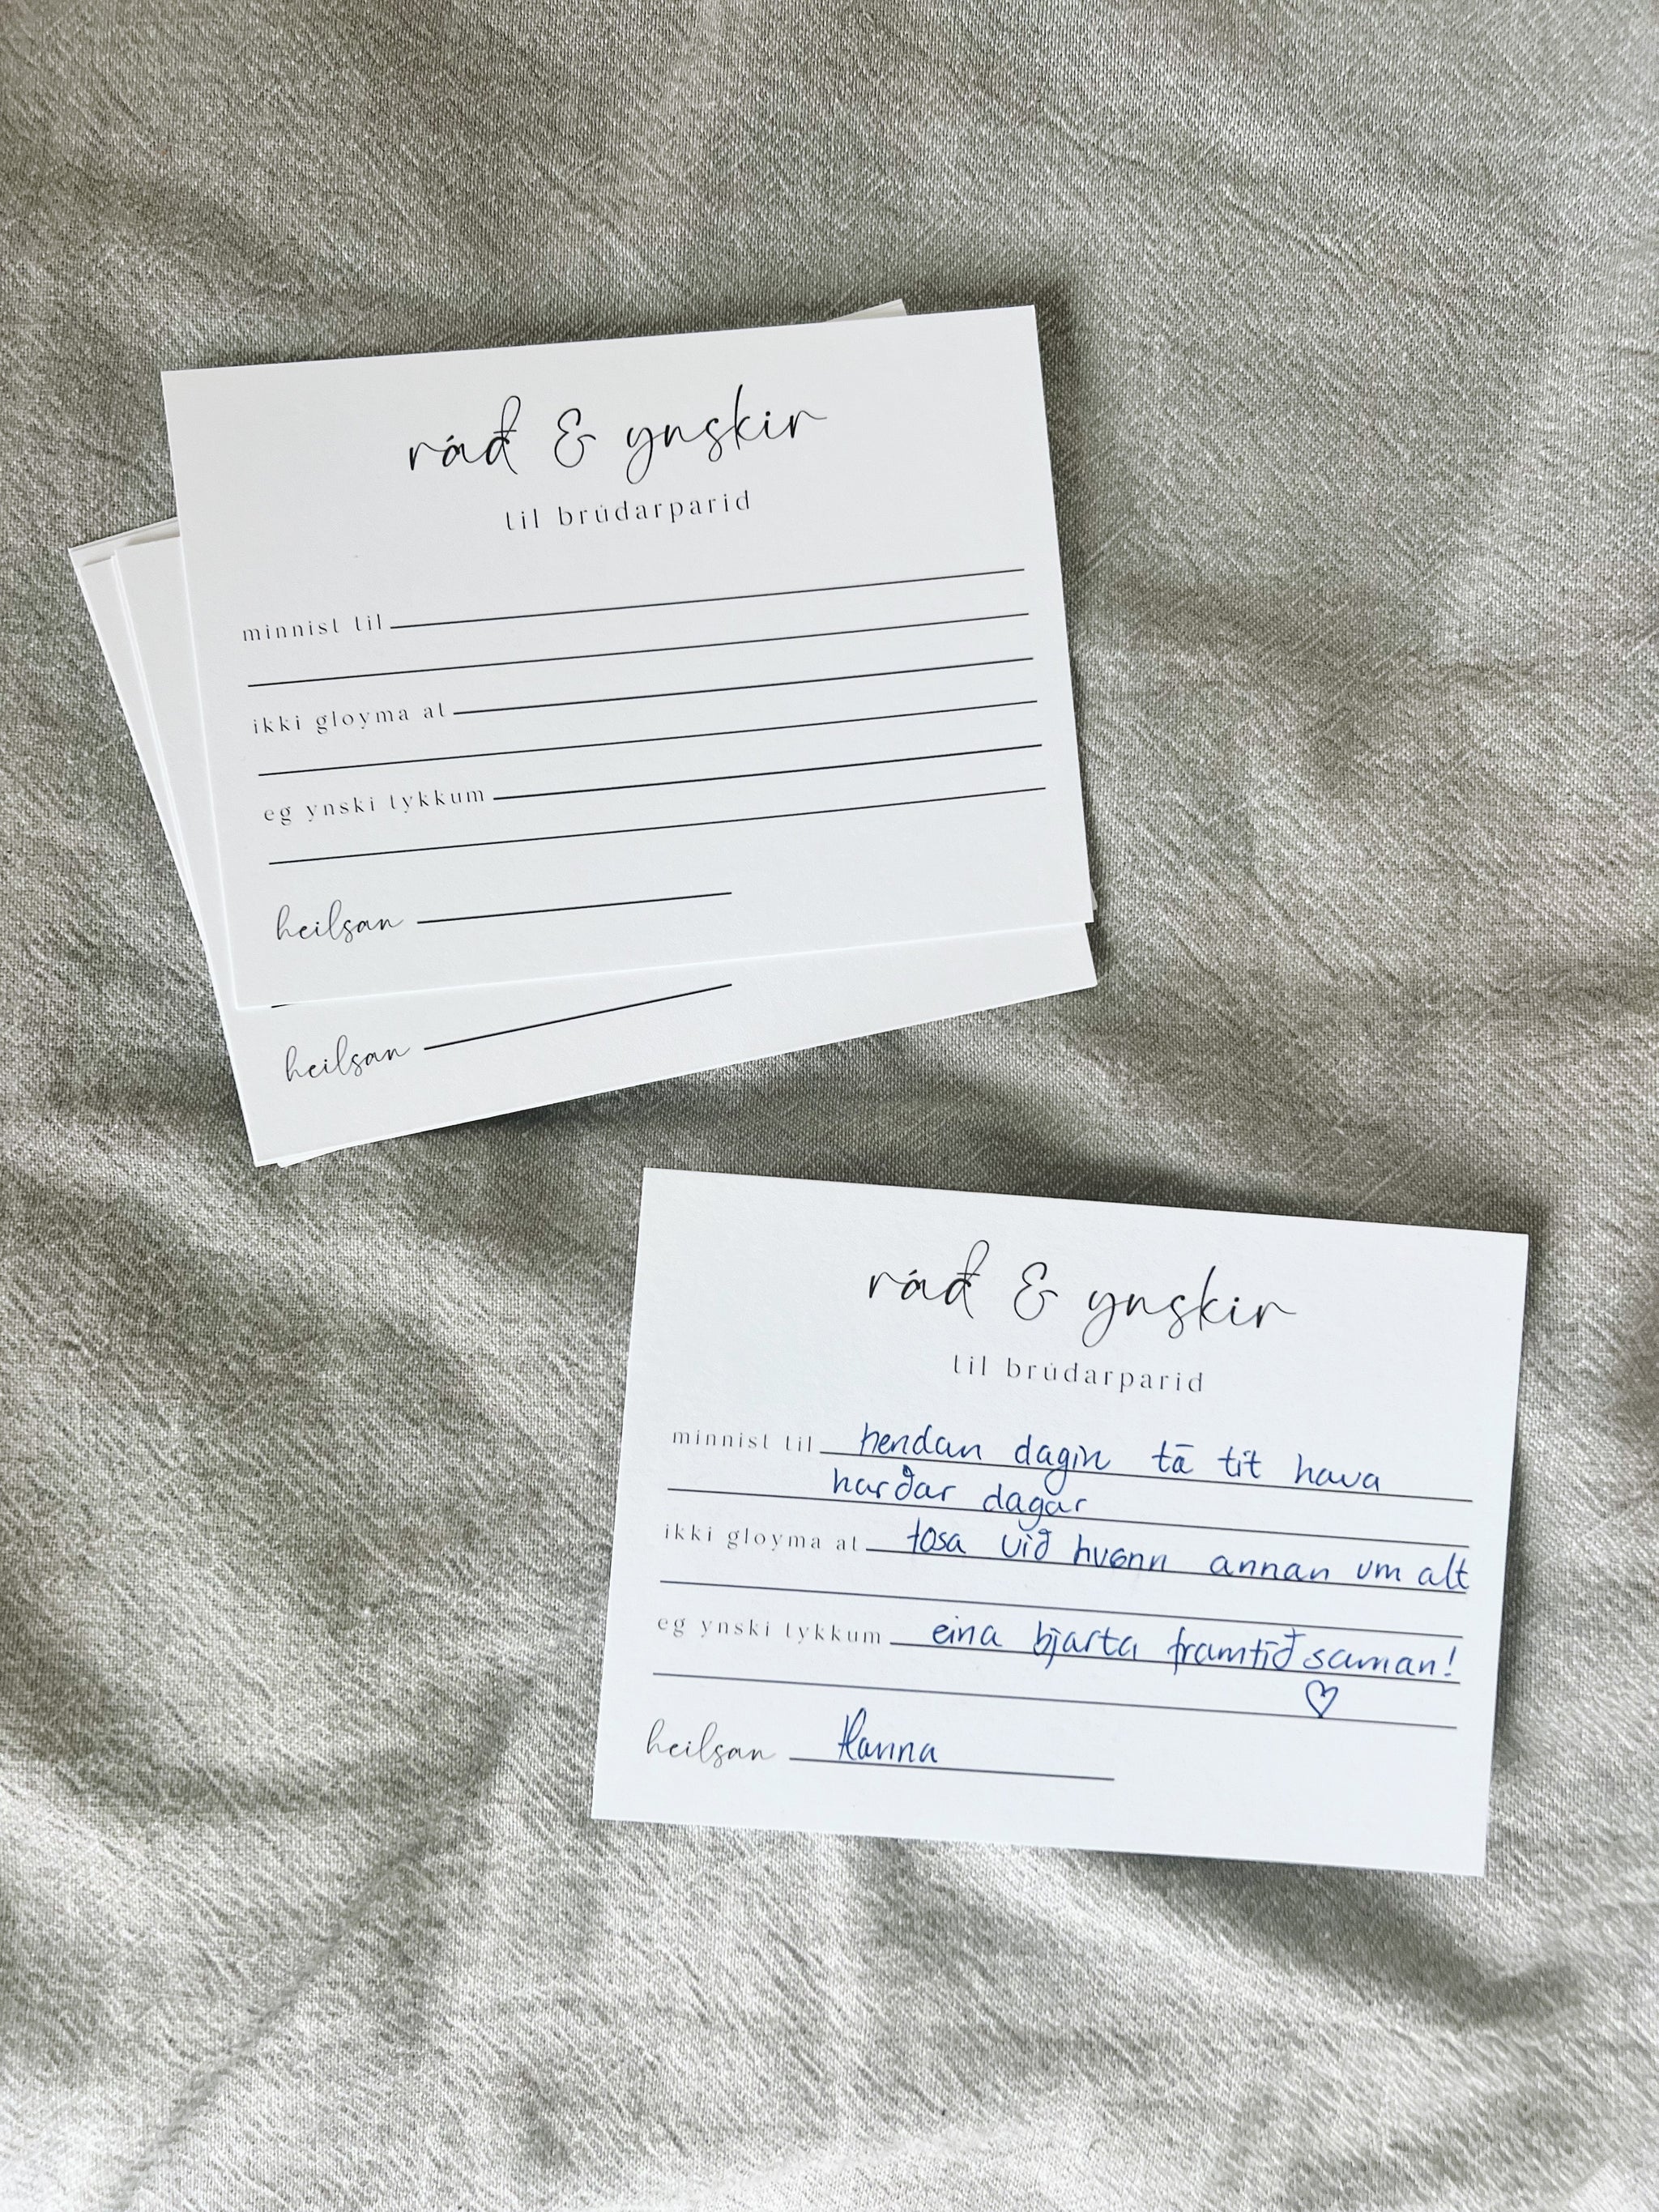 ráð & ynskir
til brúdarparid
minnist til
ikki gloyma at
eg ynski tykkum
heilsan
heilsan
ráð & ynskir
til brúdarparid
minnist til hendan dagin tá tit hava
harðar dagar
ikki gloyma at tosa við hvønn annan um alt
eg ynski tykkum eina bjarta framtíð saman!
♡
heilsan Hanna